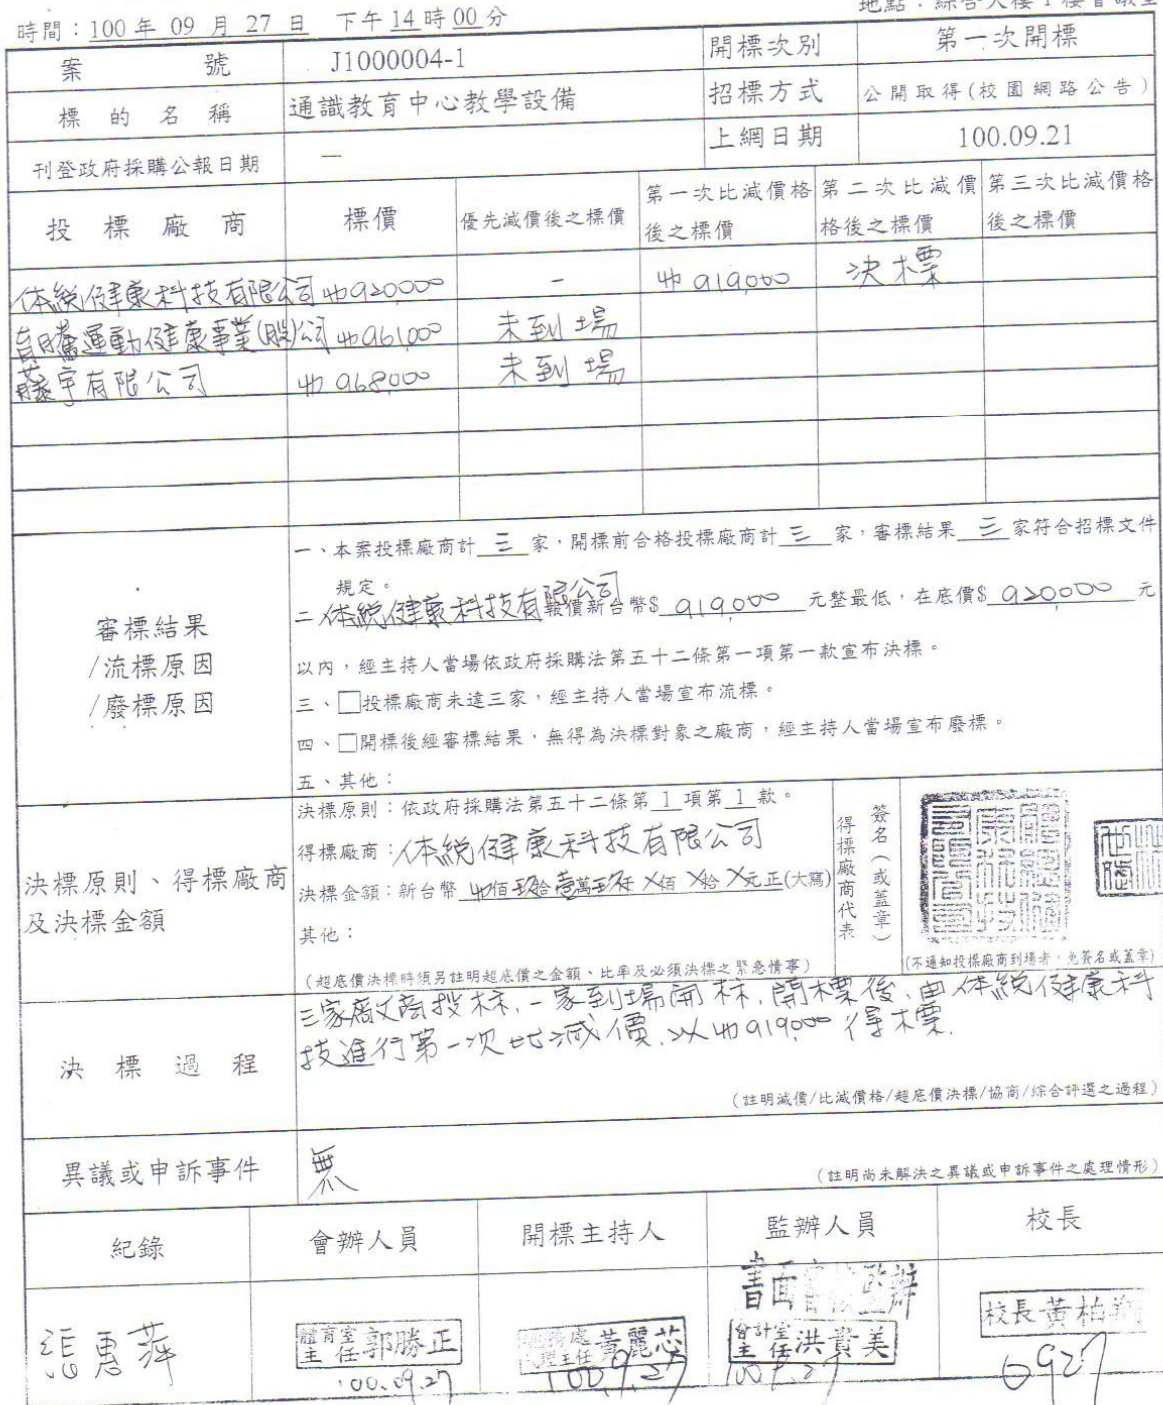 時間：100 年 09 月 27 日 下午 14 時 00 分
案 號 J1000004-1 開標次別 第一次開標
標 的 名 稱 通識教育中心教學設備 招標方式 公開取得(校園網路公告)
刊登政府採購公報日期 — 上網日期 100.09.21
投 標 廠 商 標價 優先減價後之標價 第一次比減價格後之標價 第二次比減價格後之標價 第三次比減價格後之標價
体統健康科技有限公司 920,000 - 919,000 決標
運動健康事業(股)公司 961,000 未到場
宇有限公司 968,000 未到場
審標結果
/流標原因
/廢標原因
一、本案投標廠商計 三 家，開標前合格投標廠商計 三 家，審標結果 三 家符合招標文件
規定。
二 体統健康科技有限公司 報價新台幣$ 919,000 元整最低，在底價$ 920,000 元
以內，經主持人當場依政府採購法第五十二條第一項第一款宣布決標。
三、□投標廠商未達三家，經主持人當場宣布流標。
四、□開標後經審標結果，無得為決標對象之廠商，經主持人當場宣布廢標。
五、其他：
決標原則、得標廠商
及決標金額
決標原則：依政府採購法第五十二條第 1 項第 1 款。
得標廠商：体統健康科技有限公司
決標金額：新台幣 佰 拾 壹萬 仟 X佰 X拾 X元正(大寫)
其他：
(超底價決標時須另註明超底價之金額、比率及必須決標之緊急情事)
得標廠商代表
簽名（或蓋章）
(不通知投標廠商到場者，免簽名或蓋章)
決 標 過 程
三家廠商投标,一家到場開标,開標後,由体統健康科
技進行第一次比減價,以 919,000 得標.
(註明減價/比減價格/超底價決標/協商/綜合評選之過程)
異議或申訴事件 無
(註明尚未解決之異議或申訴事件之處理情形)
紀錄 會辦人員 開標主持人 監辦人員 校長
書面審核監辦
張惠萍 體育室主任 郭勝正 黃麗芯 會計室主任 洪貴美 校長黃柏翔
100.09.27 100.9.27 100.9.27 0927